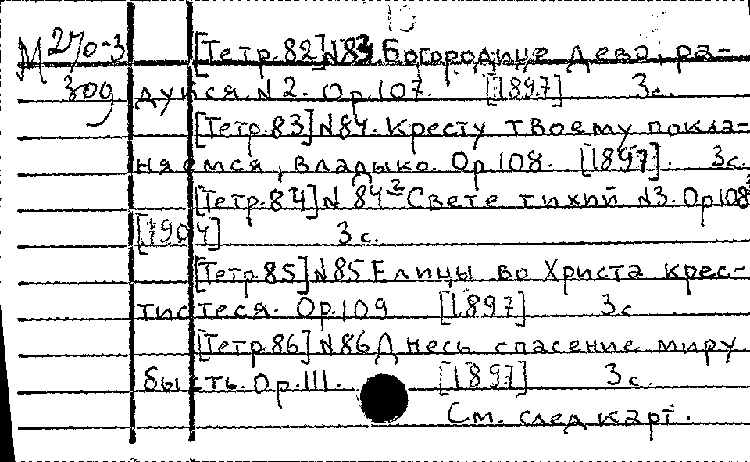 М 270-3 [Тетр.82]№83² Богородице Дево, ра-
309 дуйся. №2. Ор.107. [1897] 3с.
[Тетр.83]№84. Кресту Твоему покла-
няемся, Владыко. Ор.108. [1897]. 3с.
[Тетр.84]№84² Свете тихий №3. Ор.108²
[1904] 3с.
[Тетр.85]№85 Елицы во Христа крес-
тистеся. Ор.109 [1897] 3с
[Тетр.86]№86 Днесь спасение миру
бысть. Ор.111. [1897] 3с.
См. след карт.